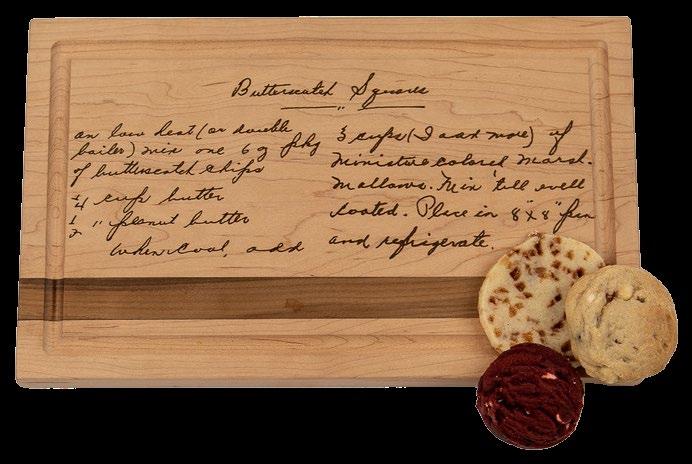 Butterscotch Squares
on low heat (or double
boiler) mix one 6 oz pkg
of butterscotch chips
1/4 cup butter
1/2 " peanut butter
When cool, add
3 cups (I add more) of
miniature colored marsh-
mallows. Mix 'till well
coated. Place in 8"x8" pan
and refrigerate.